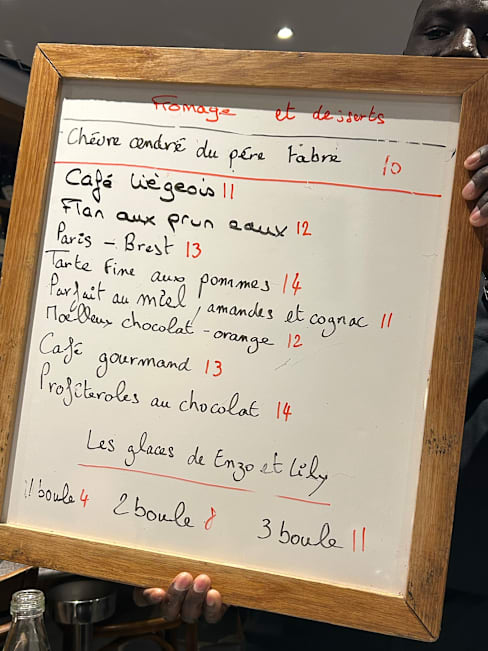 Fromage et desserts
Chèvre cendré du père Fabre 10
Café liégeois 11
Flan aux pruneaux 12
Paris - Brest 13
Tarte fine aux pommes 14
Parfait au miel, amandes et cognac 11
Moelleux chocolat - orange 12
Café gourmand 13
Profiteroles au chocolat 14
Les glaces de Enzo et Lily
1 boule 4 2 boule 8 3 boule 11